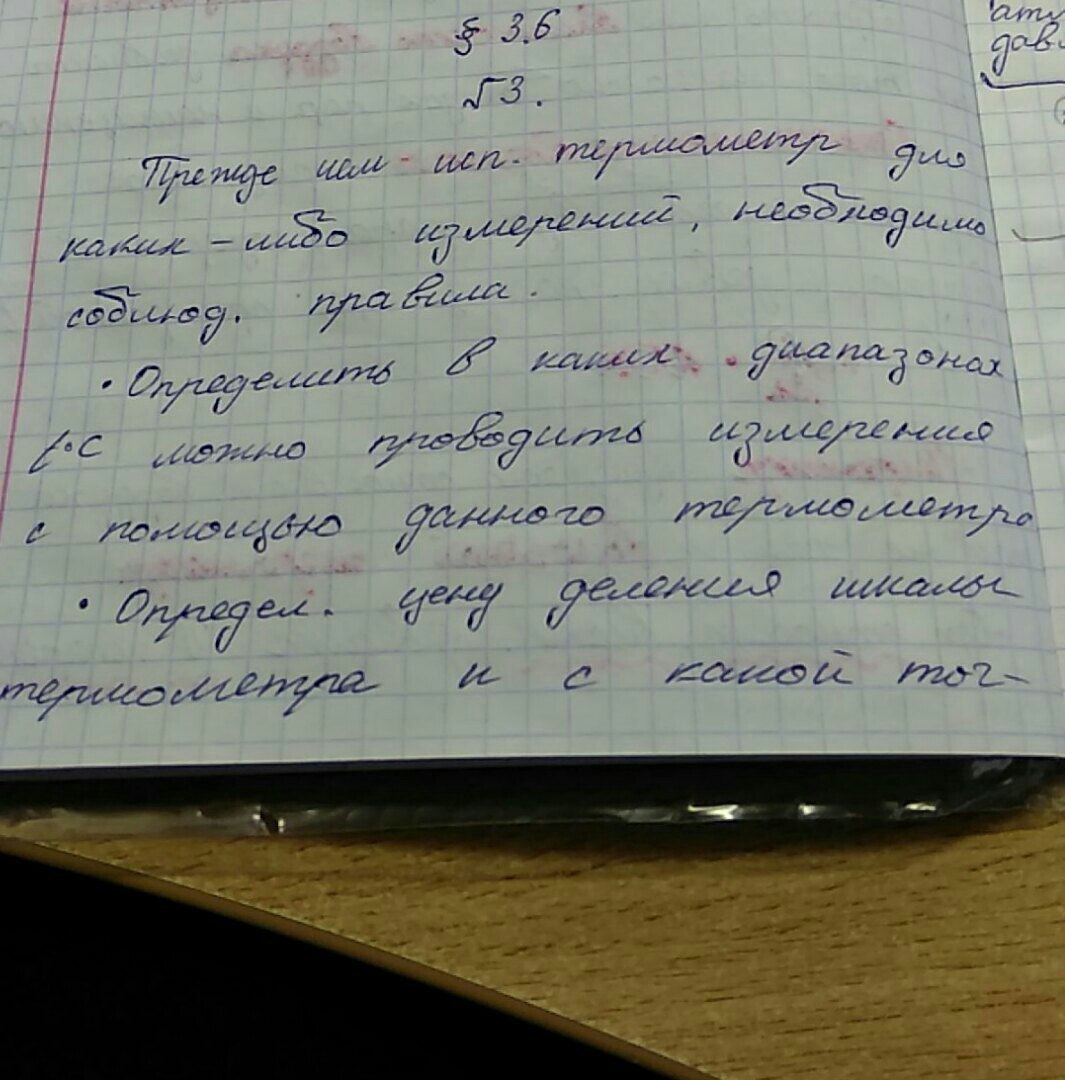 § 3.6
√3.
Прежде чем исп. термометр для
каких-либо измерений, необходимо
соблюд. правила.
• Определить в каких диапазонах
t°C можно проводить измерения
с помощью данного термометра
• Определ. цену деления шкалы
термометра и с какой точ-